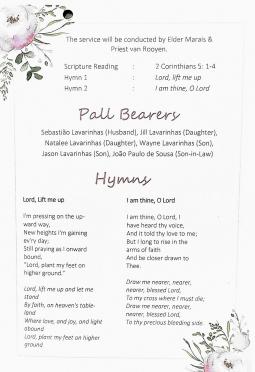 The service will be conducted by Elder Marais &
Priest van Rooyen.
Scripture Reading : 2 Corinthians 5: 1-4
Hymn 1 : Lord, lift me up
Hymn 2 : I am thine, O Lord
Pall Bearers
Sebastião Lavarinhas (Husband), Jill Lavarinhas (Daughter),
Natalee Lavarinhas (Daughter), Wayne Lavarinhas (Son),
Jason Lavarinhas (Son), João Paulo de Sousa (Son-in-Law)
Hymns
Lord, Lift me up
I'm pressing on the up-
ward way,
New heights I'm gaining
ev'ry day;
Still praying as I onward
bound,
"Lord, plant my feet on
higher ground."
Lord, lift me up and let me
stand
By faith, on heaven's table-
land
Where love, and joy, and light
abound
Lord, plant my feet on higher
ground
I am thine, O Lord
I am thine, O Lord, I
have heard thy voice,
And it told thy love to me;
But I long to rise in the
arms of faith
And be closer drawn to
Thee.
Draw me nearer, nearer,
nearer, blessed Lord,
To my cross where I must die;
Draw me nearer, nearer,
nearer, blessed Lord,
To thy precious bleeding side.